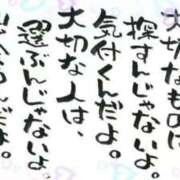 大切なものは
探すんじゃないよ。
気付くんだよ。
大切な人は、
選ぶんじゃないよ。
んだよ。